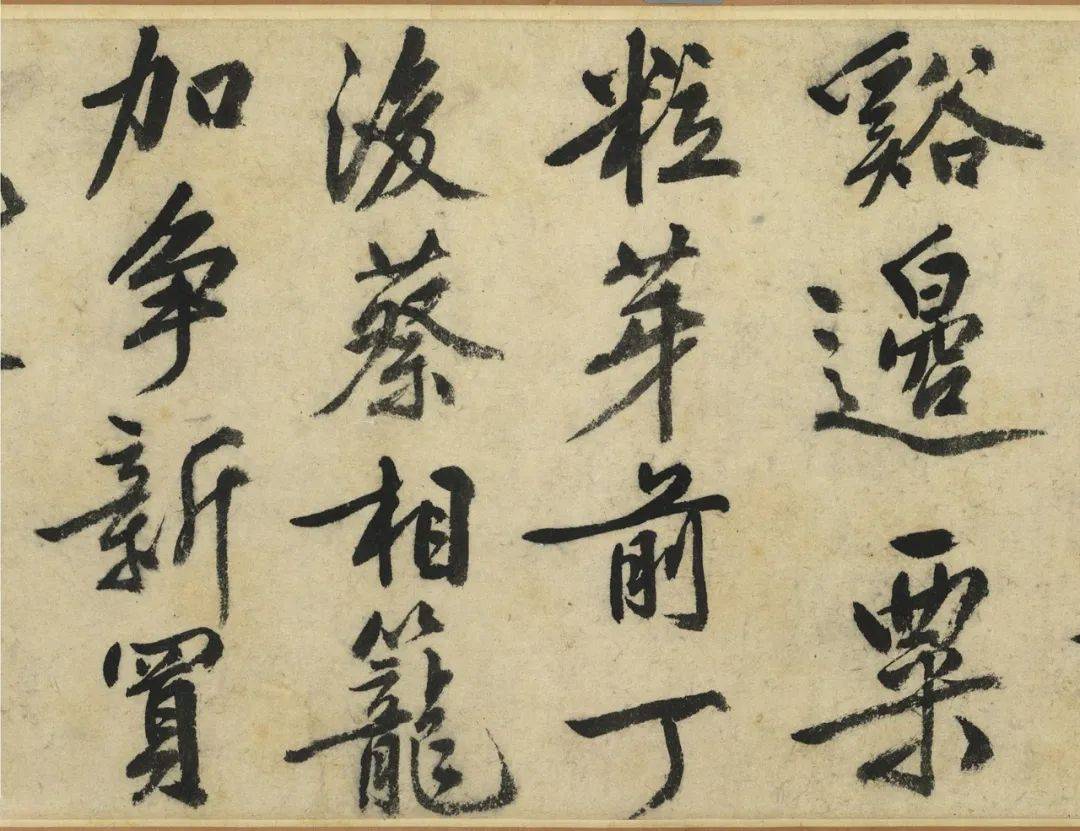 谿邊粟
粒芽前丁
後蔡相籠
加争新買